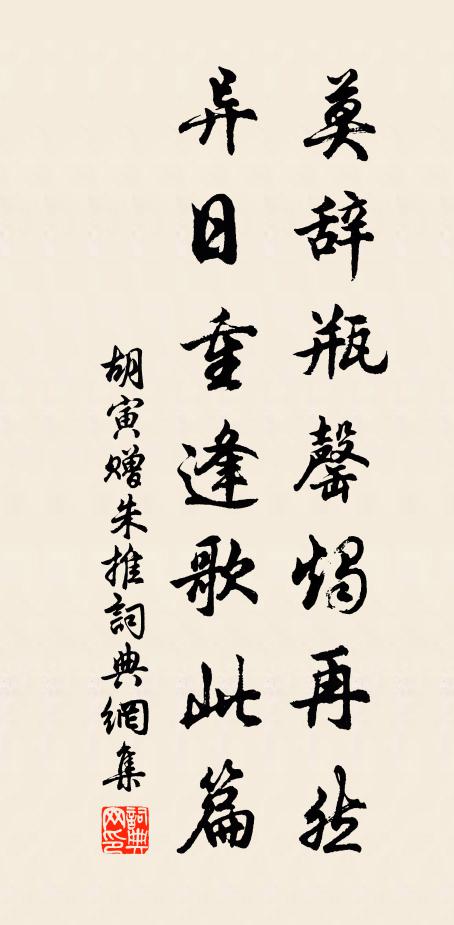 莫辞瓶罄烛再然
异日重逢歌此篇
胡寅赠朱推詞典網集
詞典網印